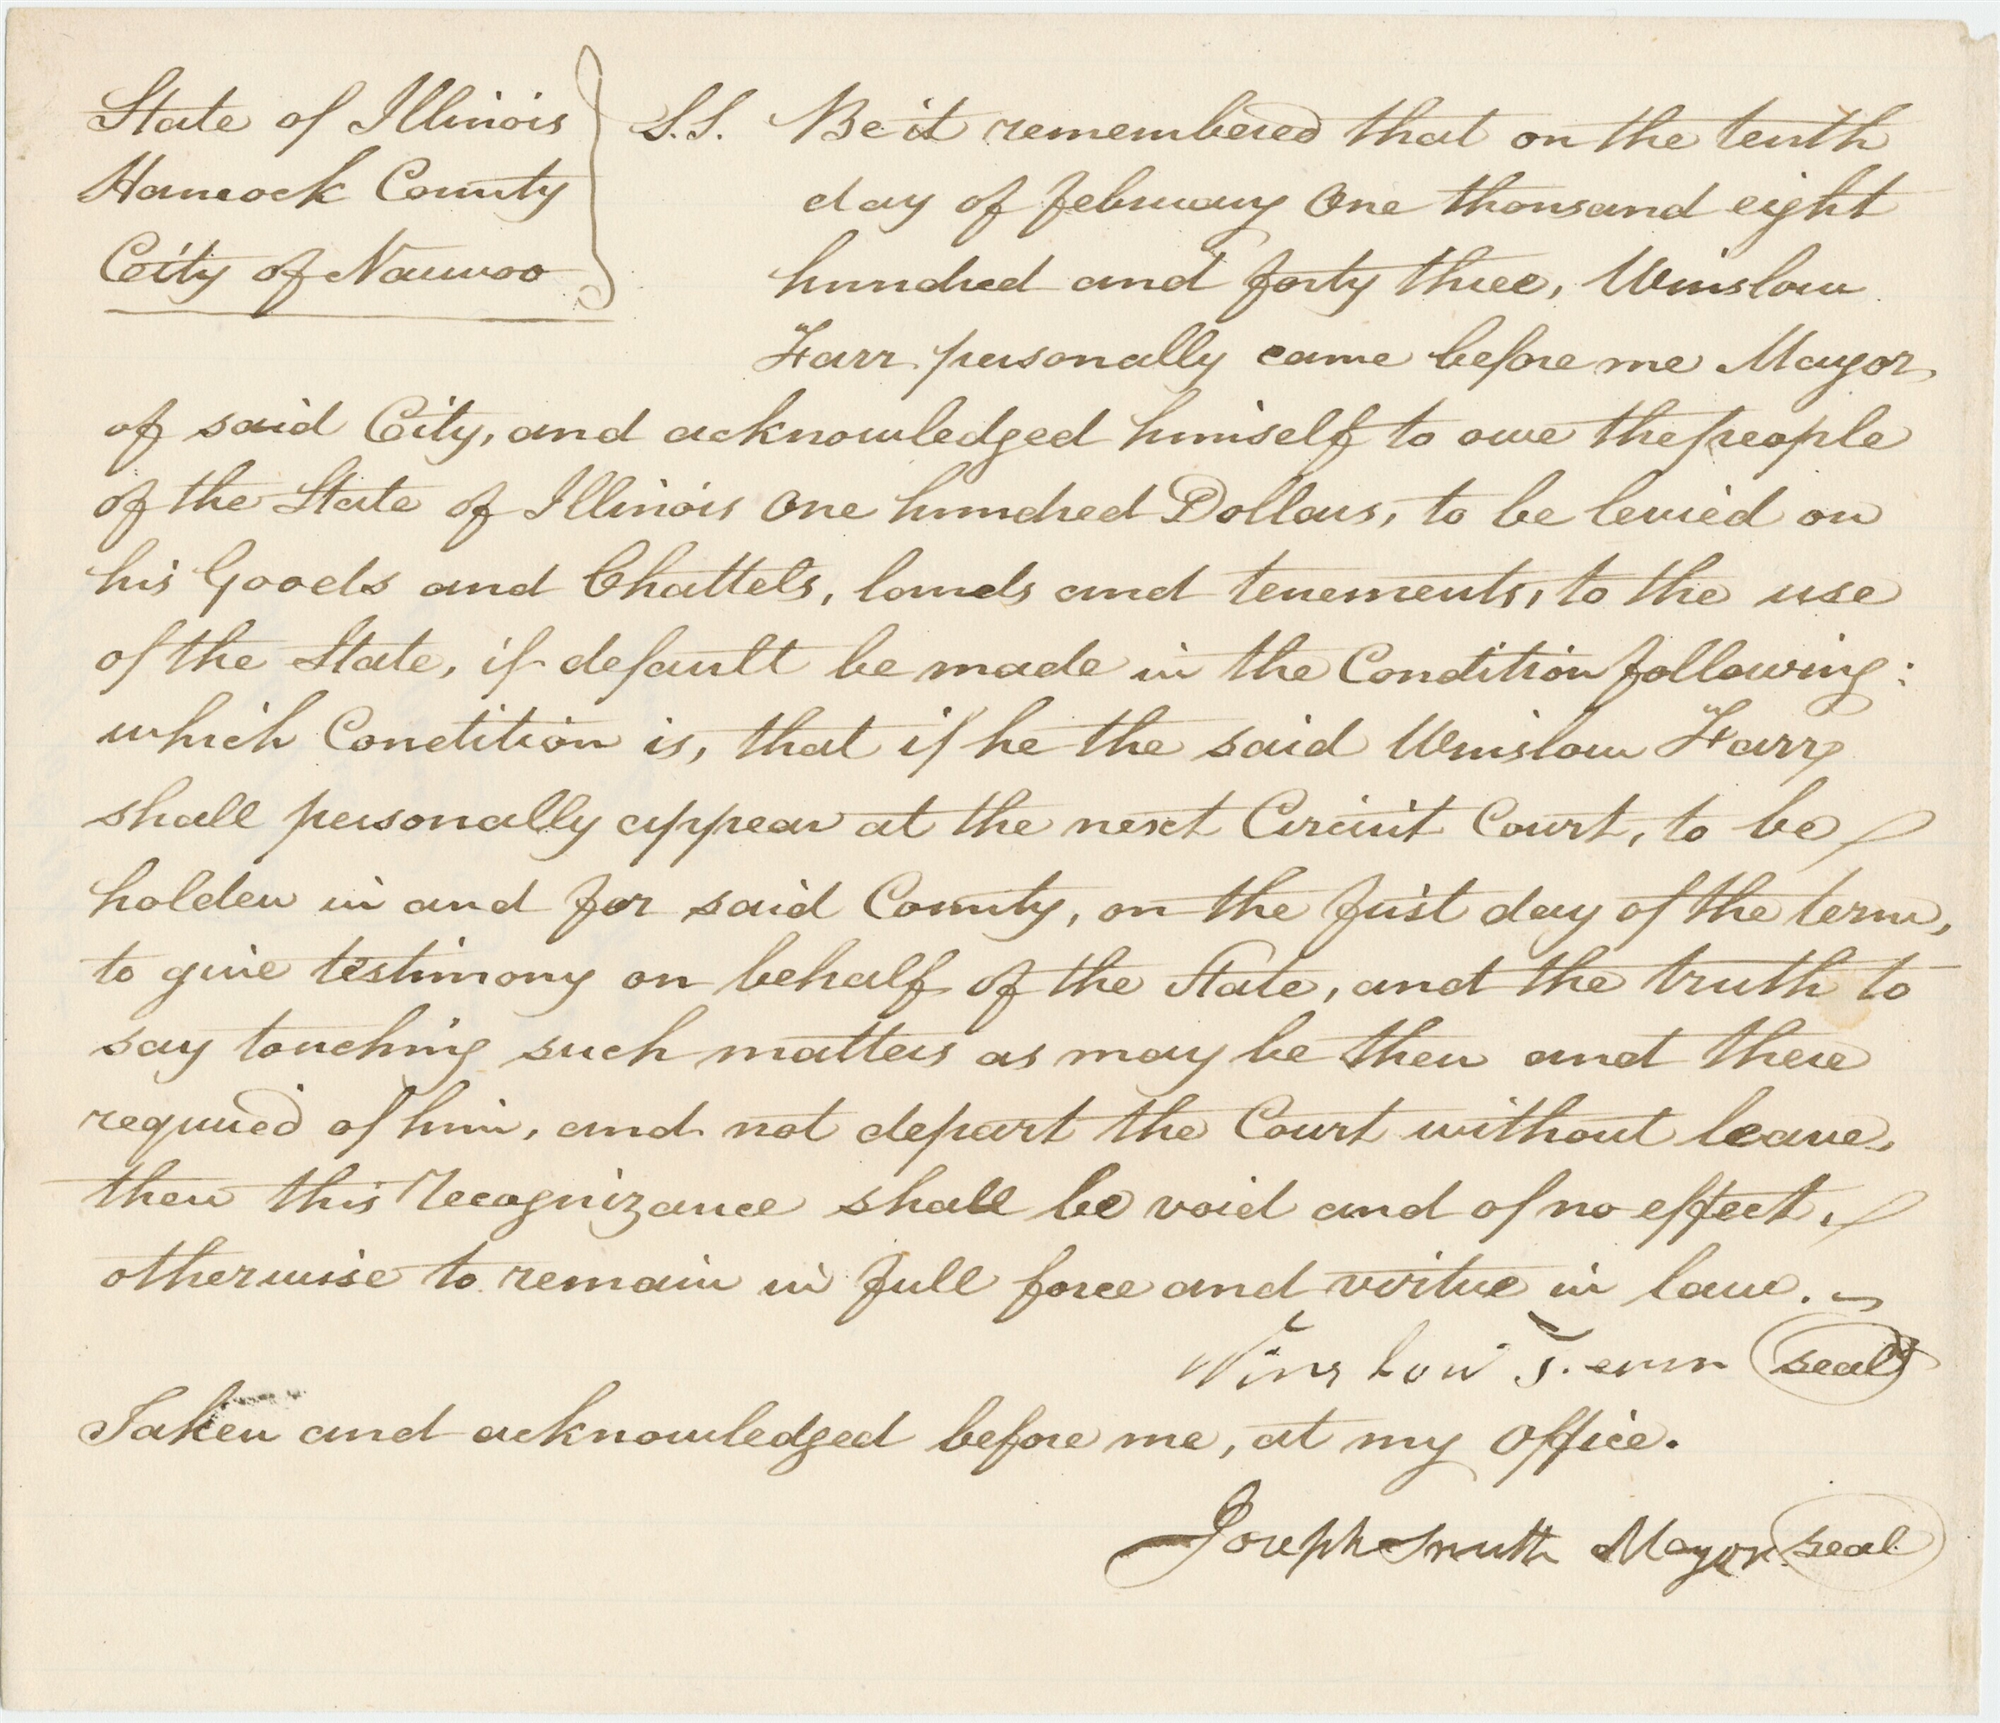 State of Illinois
Hancock County
City of Nauvoo
S.S. Be it remembered that on the tenth
day of february One thousand eight
hundred and forty three, Winslow
Farr personally came before me Mayor
of said City, and acknowledged himself to owe the people
of the State of Illinois One hundred Dollars, to be levied on
his Goods and Chattels, lands and tenements, to the use
of the State, if default be made in the Condition following:
which Condition is, that if he the said Winslow Farr
shall personally appear at the next Circuit Court, to be
holden in and for said County, on the first day of the term,
to give testimony on behalf of the State, and the truth to
say touching such matters as may be then and there
required of him, and not depart the Court without leave,
then this Recognizance shall be void and of no effect,
otherwise to remain in full force and virtue in law.
Winslow seal
Taken and acknowledged before me, at my Office.
Joseph Smith Mayor. seal